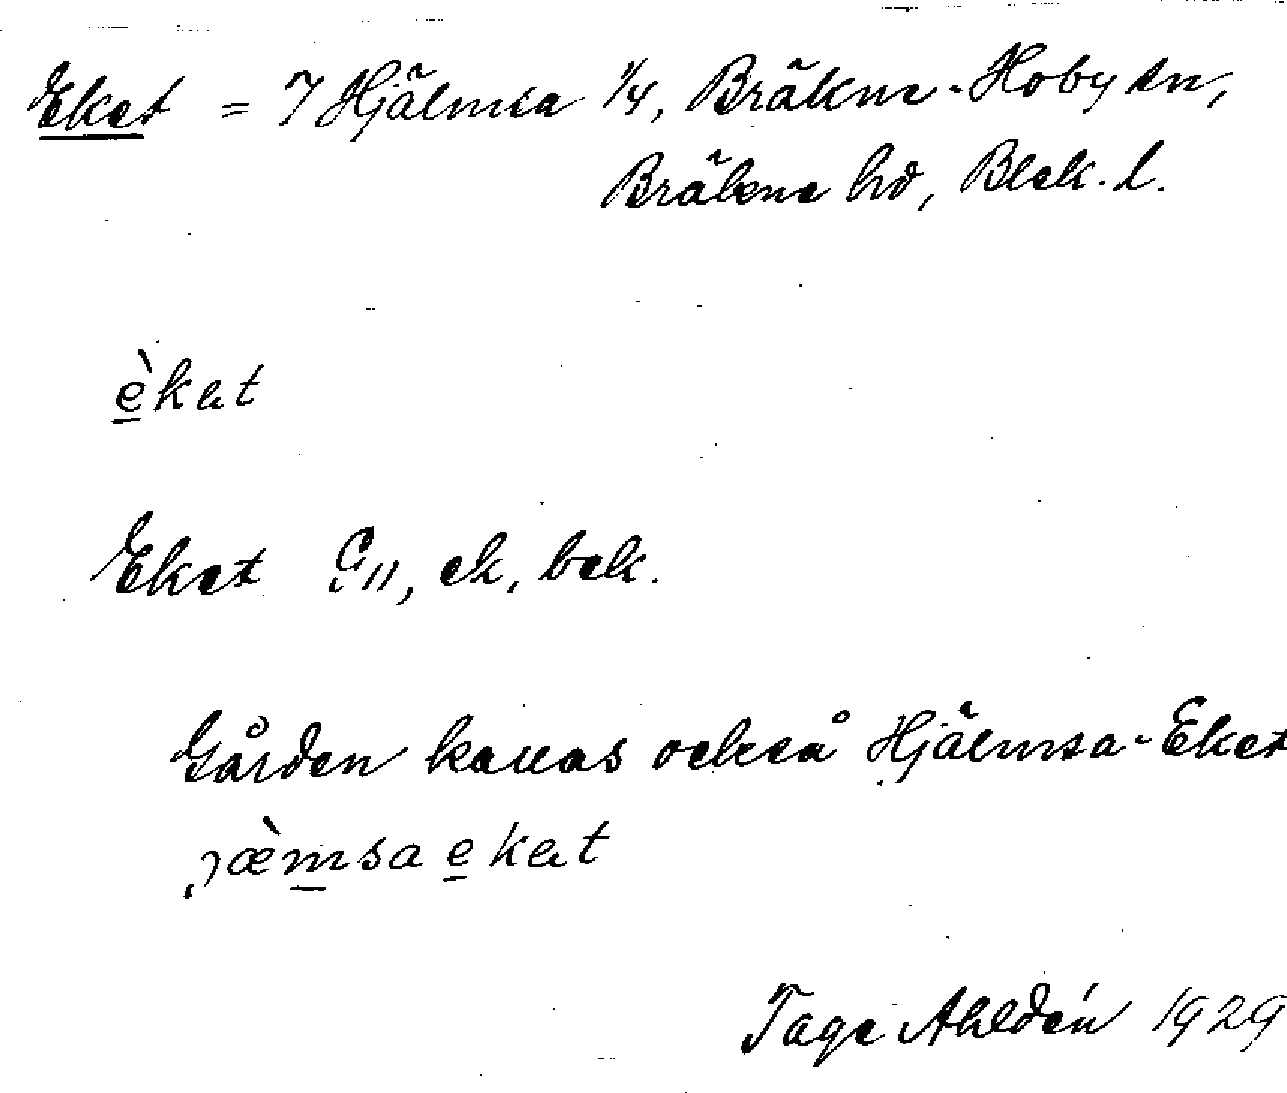 Eket = 7 Hjälmsa 1/4, Bräkne-Hoby sn,
Bräkne hd, Blek. l.
è̱kat
Eket G11, ek, bek.
Gården kallas också Hjälmsa-Eket
jæ̀m̱sa e̱kat
Tage Ahldén 1929